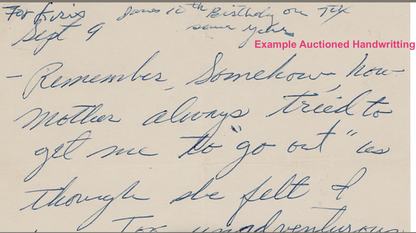 For Eric James 12th Birthday on TEX
Sept 9 same year
Example Auctioned Handwritting
- Remember, Somehow, how
mother always tried to
get me to "go out" as
though she felt I
Too unadventurous